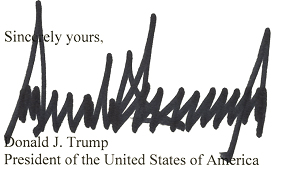 Sincerely yours,
Donald J. Trump
President of the United States of America